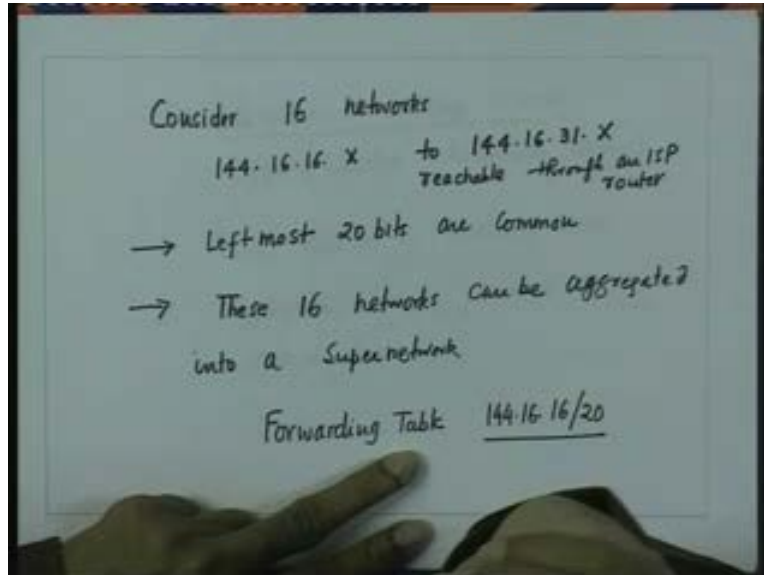 Consider 16 networks
144.16.16. X to 144.16.31. X
reachable through an ISP
router
→ Leftmost 20 bits are Common
→ These 16 networks can be aggregated
into a Supernetwork
Forwarding Table 144.16.16/20